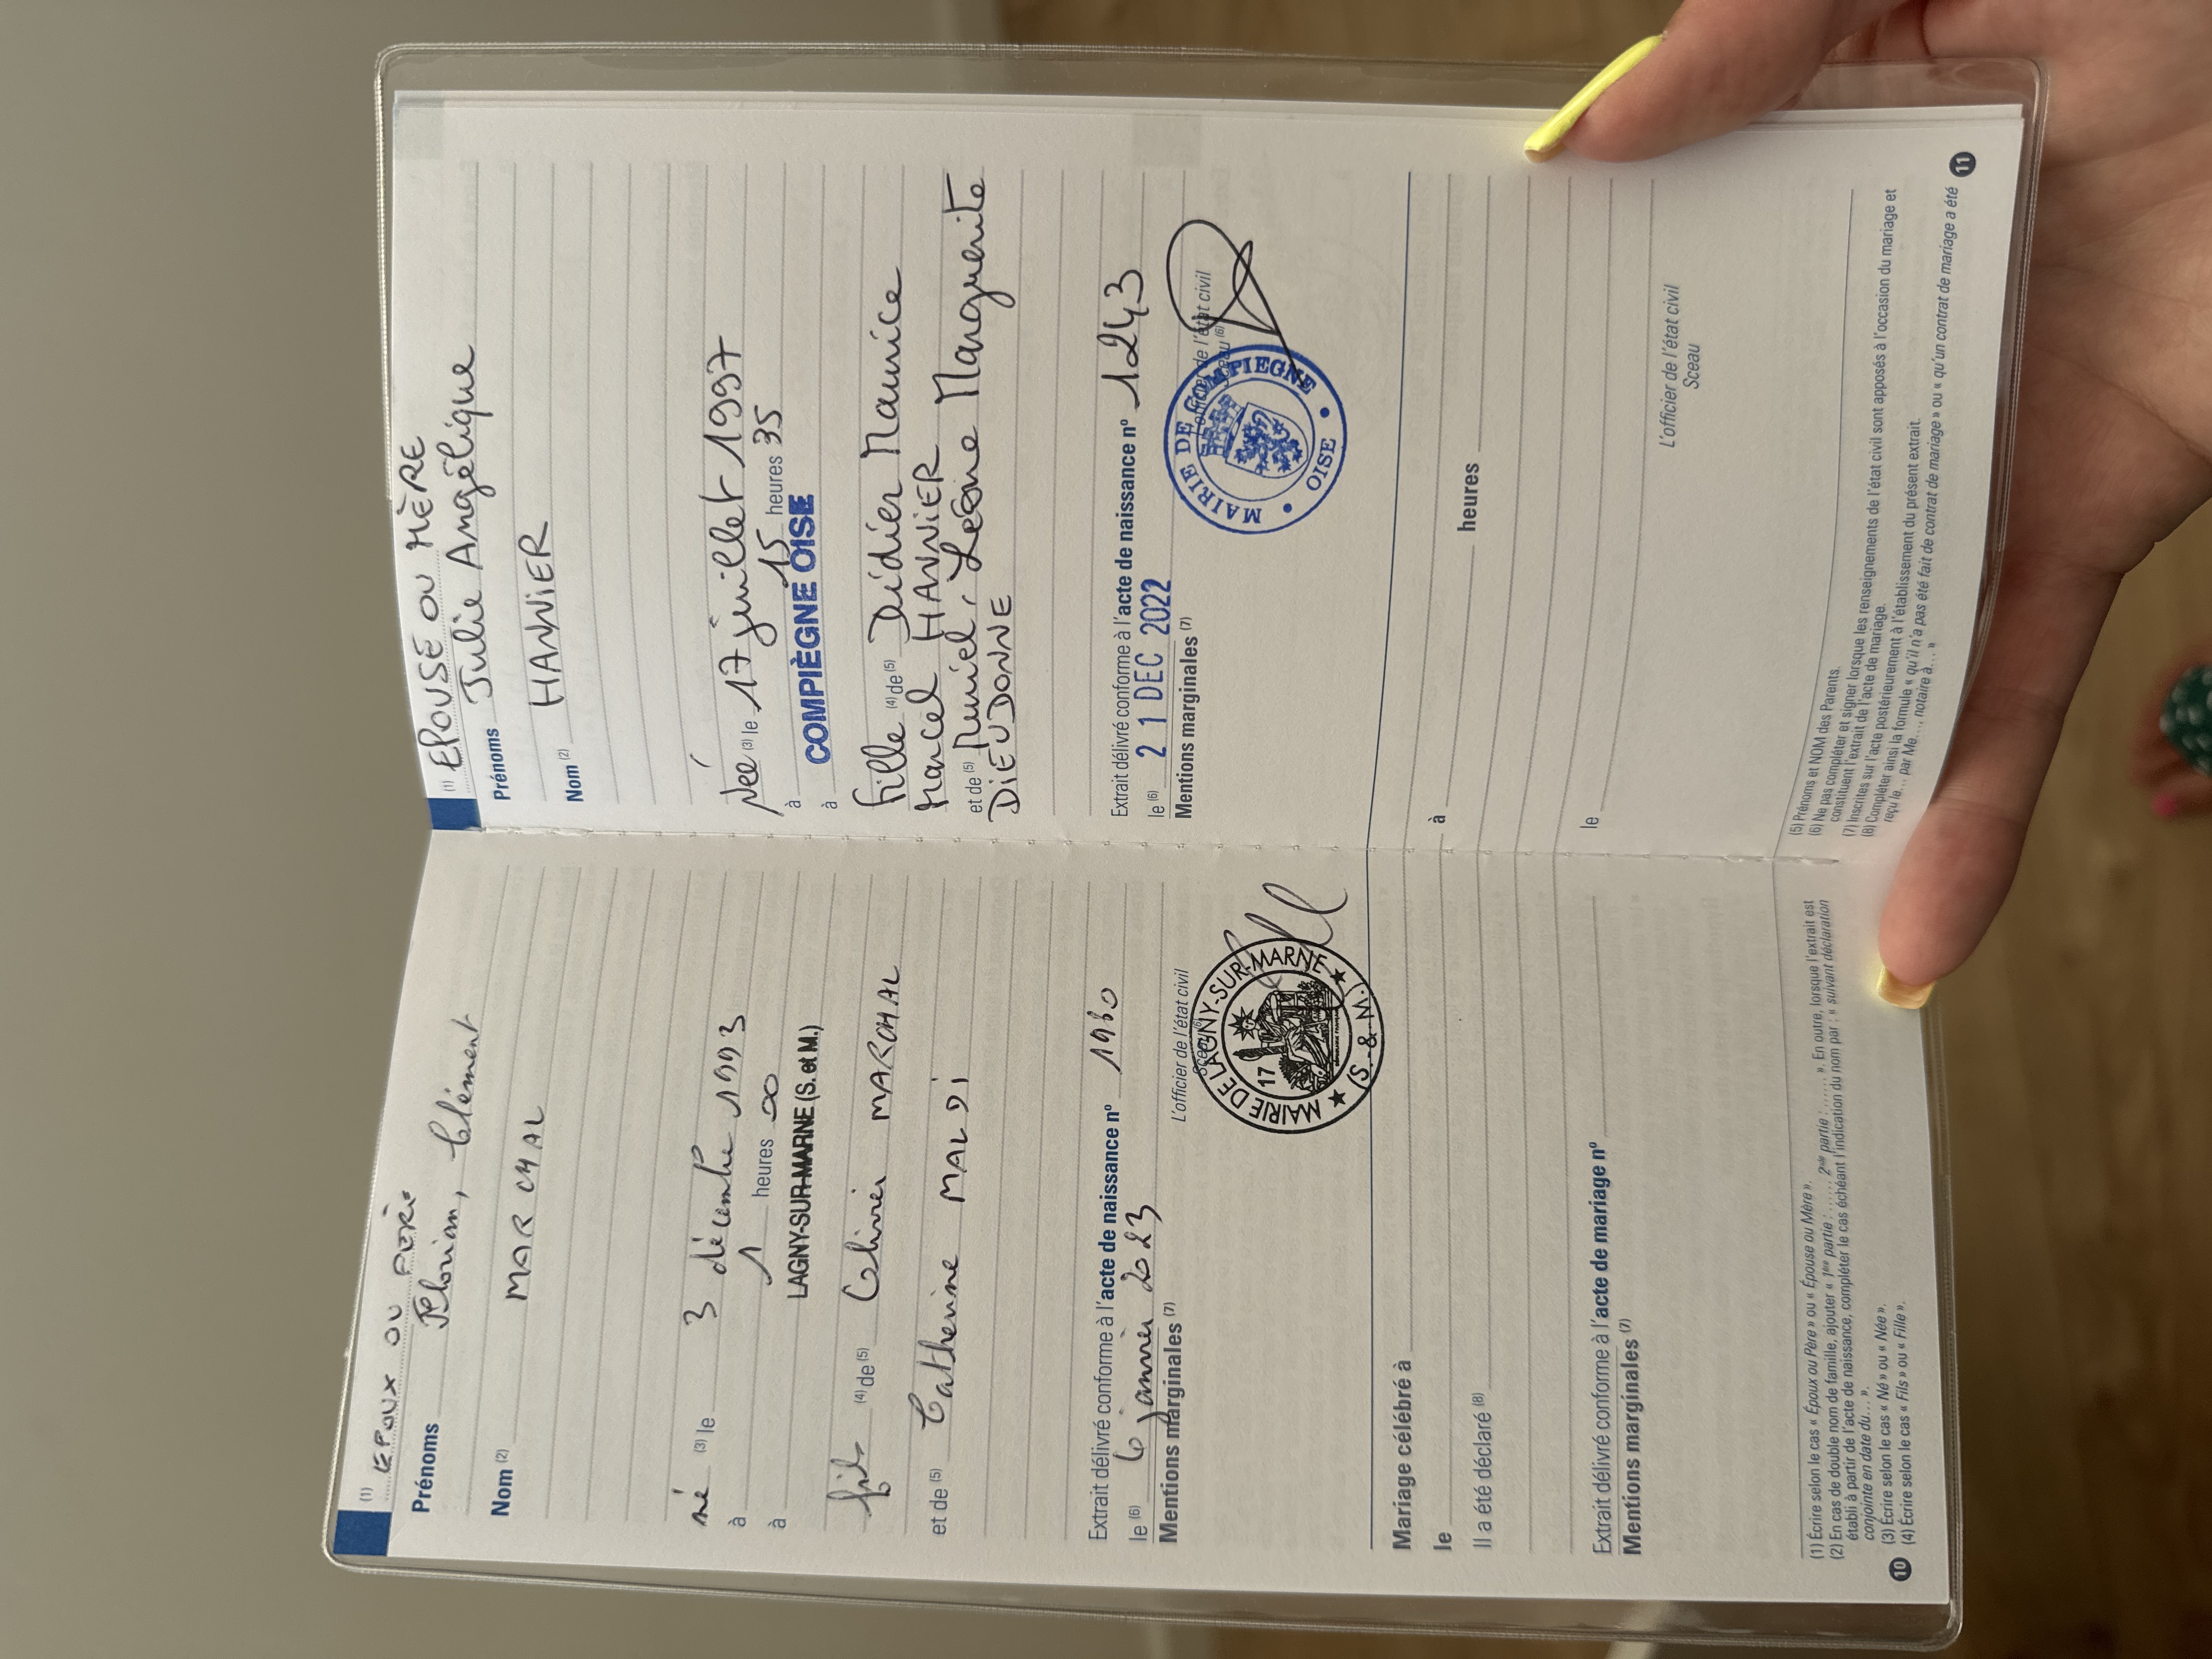 (1) EPOUX OU PÈRE
Prénoms Florian, Clément
Nom (2) MARCHAL
né (3) le 3 décembre 1993
à 1 heures 00
à LAGNY-SUR-MARNE (S. et M.)
fils (4) de (5) Olivier MARCHAL
et de (5) Catherine MALDI
Extrait délivré conforme à l'acte de naissance nº 1960
le (6) 6 janvier 2023
L'officier de l'état civil
Sceau (6)
Mentions marginales (7)
MAIRIE DE LAGNY-SUR-MARNE
17
(S. & M.)
Mariage célébré à
le
Il a été déclaré (8)
Extrait délivré conforme à l'acte de mariage nº
Mentions marginales (7)
(1) Écrire selon le cas « Époux ou Père » ou « Épouse ou Mère ».
(2) En cas de double nom de famille, ajouter « 1ère partie : ...... 2nde partie : ...... ». En outre, lorsque l'extrait est
établi à partir de l'acte de naissance, compléter le cas échéant l'indication du nom par : « suivant déclaration
conjointe en date du... ».
(3) Écrire selon le cas « Né » ou « Née ».
(4) Écrire selon le cas « Fils » ou « Fille ».
10
(1) EPOUSE OU MÈRE
Prénoms Julie Angélique
Nom (2) HANNIER
Née (3) le 17 juillet 1997
à 15 heures 35
à COMPIÈGNE OISE
fille (4) de (5) Didier Maurice
Marcel HANNIER
et de (5) Muriel, Léone Marguerite
DIEUDONNE
Extrait délivré conforme à l'acte de naissance nº 1243
le (6) 21 DEC 2022
L'officier de l'état civil
Sceau (6)
Mentions marginales (7)
MAIRIE DE COMPIEGNE
OISE
à heures
le
L'officier de l'état civil
Sceau
(5) Prénoms et NOM des Parents.
(6) Ne pas compléter et signer lorsque les renseignements de l'état civil sont apposés à l'occasion du mariage et
constituent l'extrait de l'acte de mariage.
(7) Inscrites sur l'acte postérieurement à l'établissement du présent extrait.
(8) Compléter ainsi la formule « qu'il n'a pas été fait de contrat de mariage » ou « qu'un contrat de mariage a été
reçu le... par Me.... notaire à... »
11